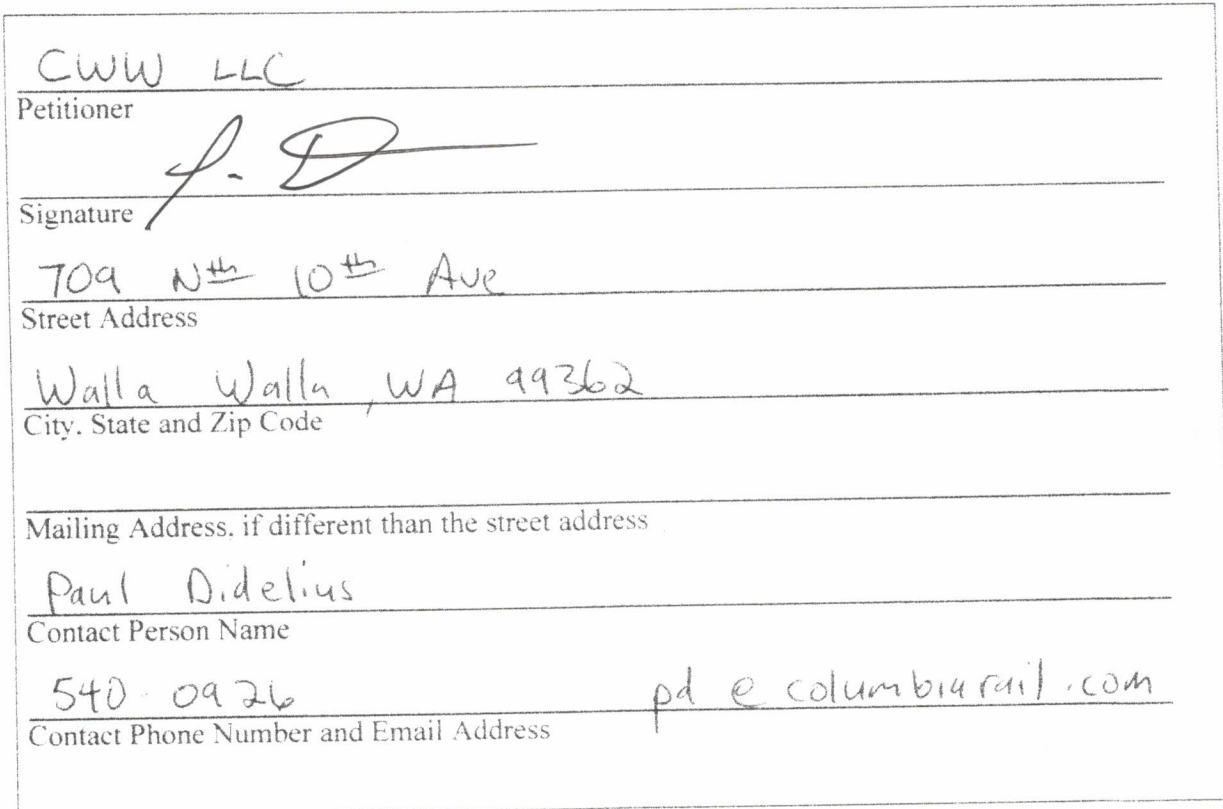 CWW LLC
Petitioner
Signature
709 Nth 10th Ave
Street Address
Walla Walla, WA 99362
City, State and Zip Code
Mailing Address, if different than the street address
Paul Didelius
Contact Person Name
540 0926 pd@columbiarail.com
Contact Phone Number and Email Address